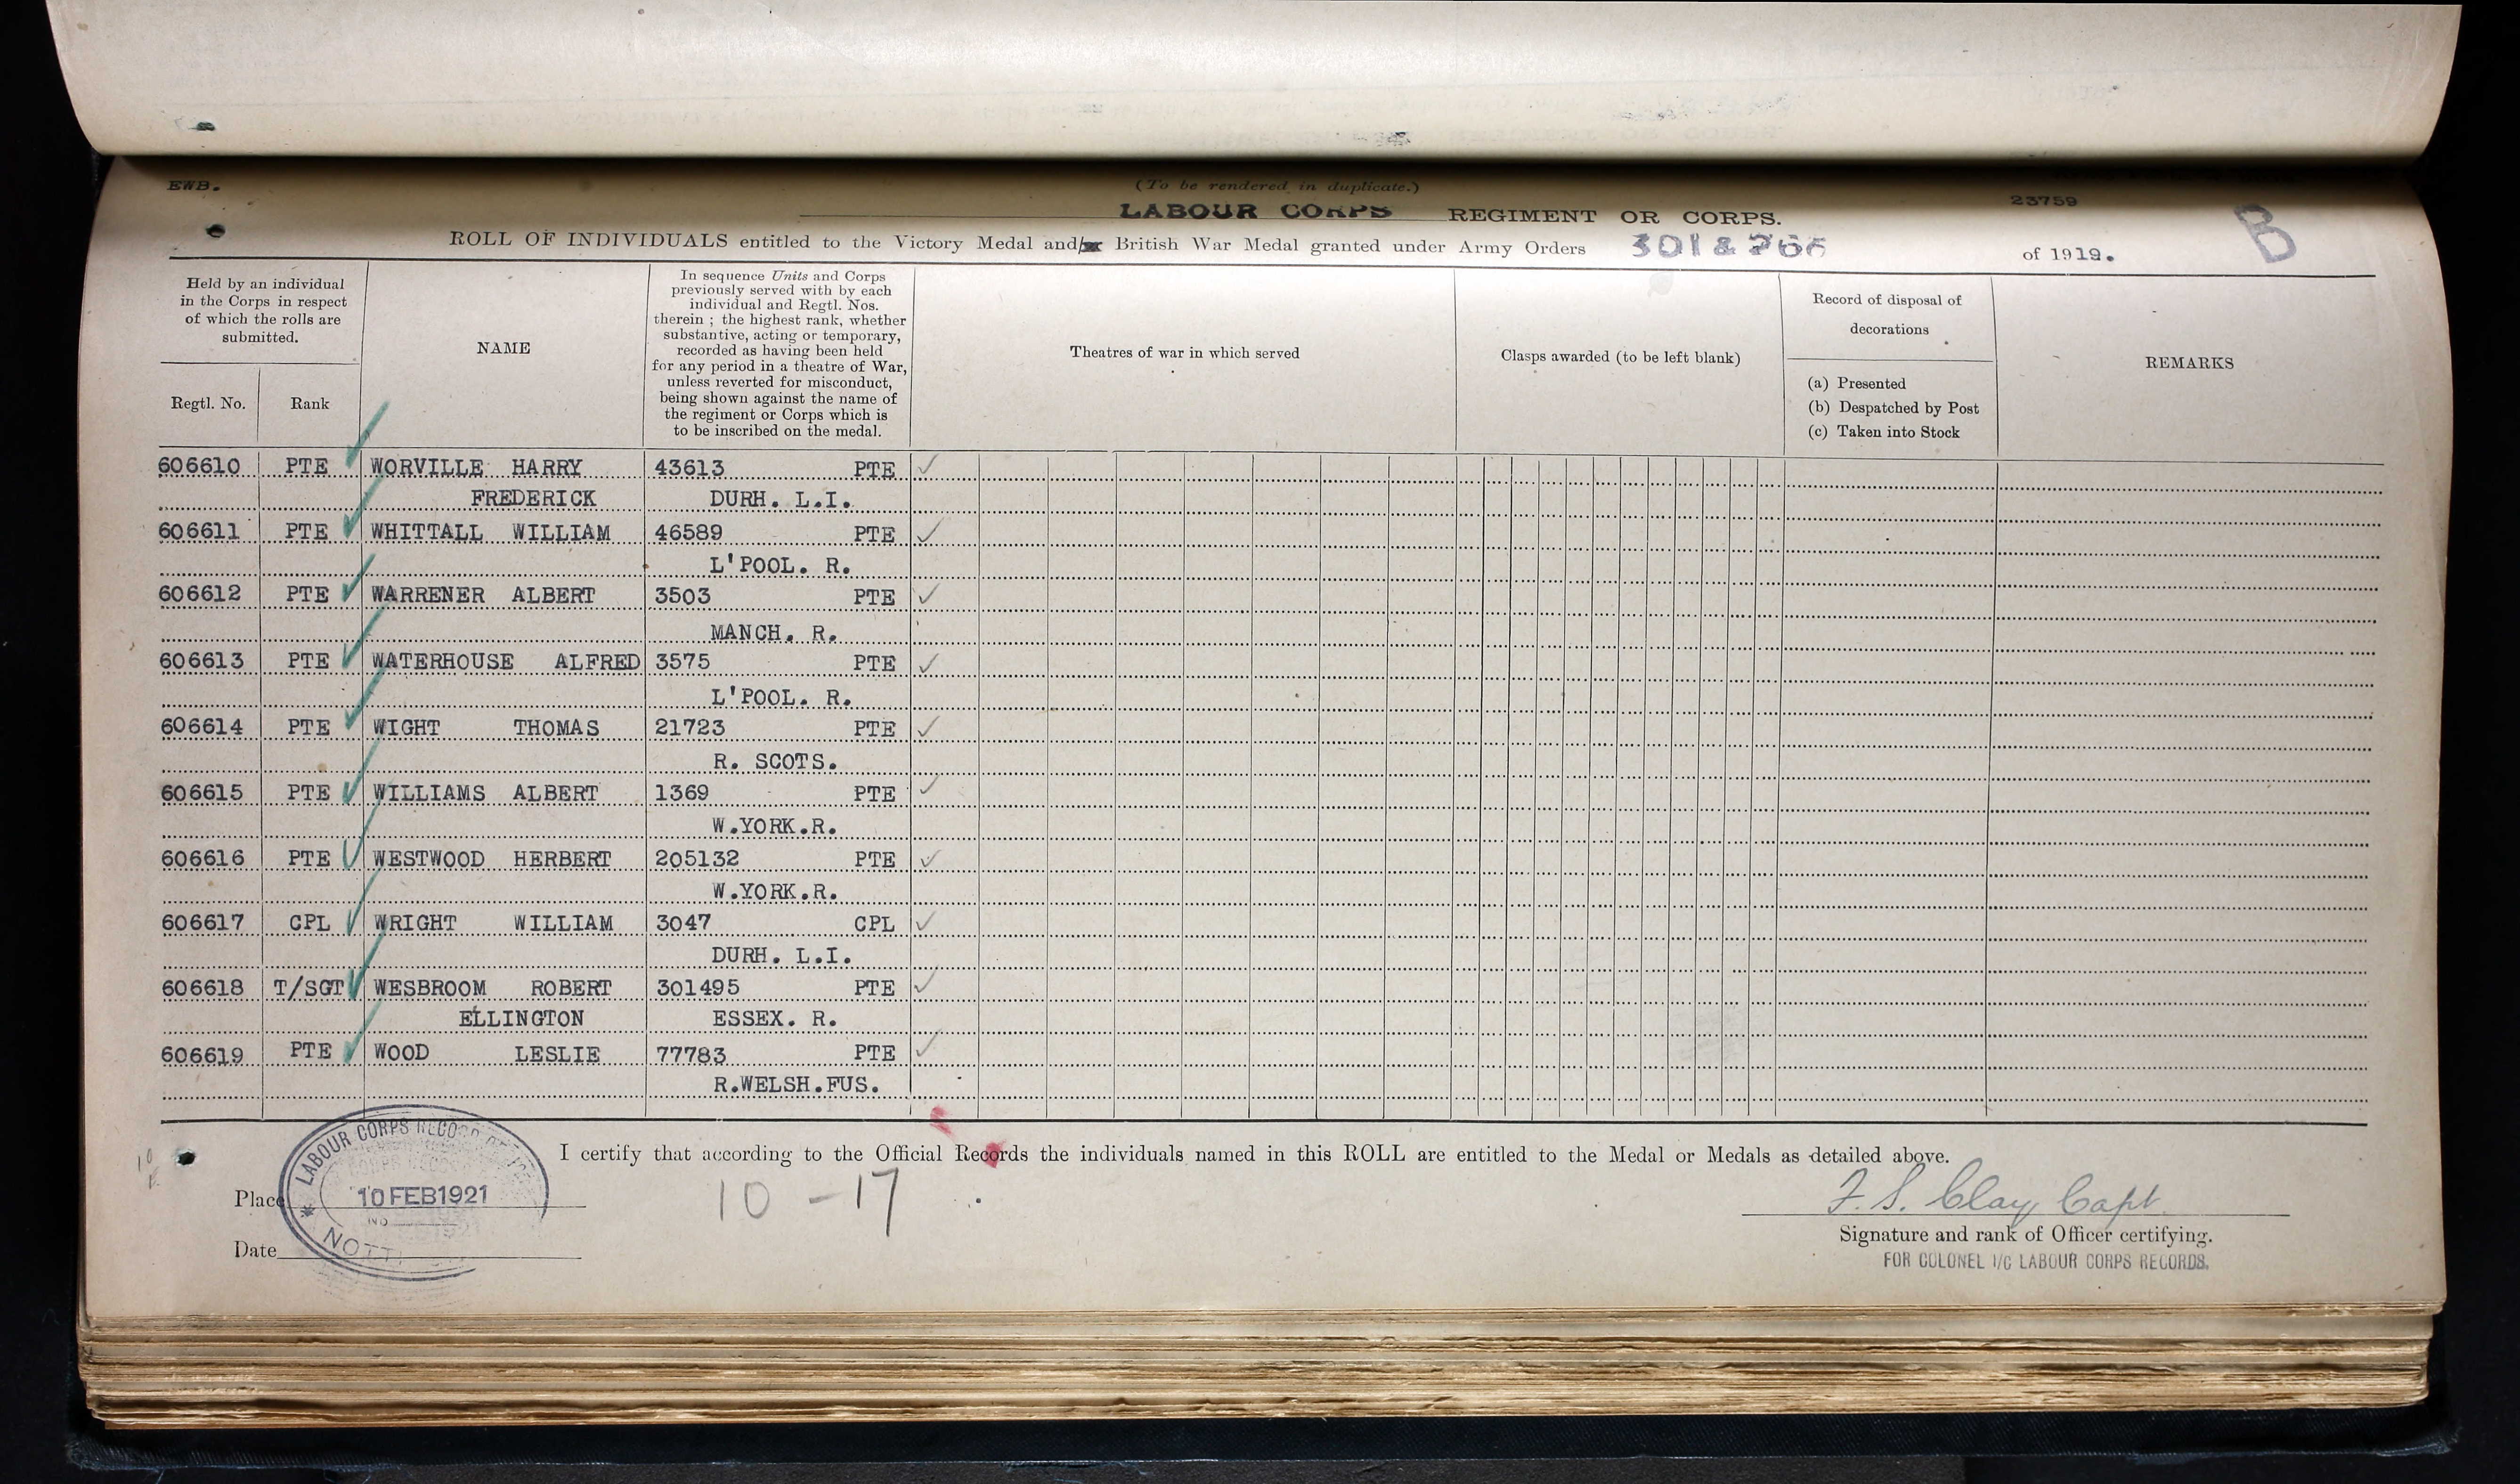 EWB.
(To be rendered in duplicate.)
23759
LABOUR CORPS REGIMENT OR CORPS.
B
ROLL OF INDIVIDUALS entitled to the Victory Medal and/or British War Medal granted under Army Orders 301 & 266 of 1919.
Held by an individual
in the Corps in respect
of which the rolls are
submitted.
Regtl. No.
Rank
NAME
In sequence Units and Corps
previously served with by each
individual and Regtl. Nos.
therein ; the highest rank, whether
substantive, acting or temporary,
recorded as having been held
for any period in a theatre of War,
unless reverted for misconduct,
being shown against the name of
the regiment or Corps which is
to be inscribed on the medal.
Theatres of war in which served
Clasps awarded (to be left blank)
Record of disposal of
decorations
(a) Presented
(b) Despatched by Post
(c) Taken into Stock
REMARKS
606610 PTE WORVILLE HARRY 43613 PTE
FREDERICK DURH. L.I.
606611 PTE WHITTALL WILLIAM 46589 PTE
L'POOL. R.
606612 PTE WARRENER ALBERT 3503 PTE
MANCH. R.
606613 PTE WATERHOUSE ALFRED 3575 PTE
L'POOL. R.
606614 PTE WIGHT THOMAS 21723 PTE
R. SCOTS.
606615 PTE WILLIAMS ALBERT 1369 PTE
W.YORK.R.
606616 PTE WESTWOOD HERBERT 205132 PTE
W.YORK.R.
606617 CPL WRIGHT WILLIAM 3047 CPL
DURH. L.I.
606618 T/SGT WESBROOM ROBERT 301495 PTE
ELLINGTON ESSEX. R.
606619 PTE WOOD LESLIE 77783 PTE
R.WELSH.FUS.
I certify that according to the Official Records the individuals named in this ROLL are entitled to the Medal or Medals as detailed above.
LABOUR CORPS RECORD OFFICE
10 FEB 1921
NO
NOTT
Place
Date
10 - 17
F. S. Clay Capt.
Signature and rank of Officer certifying.
FOR COLONEL I/C LABOUR CORPS RECORDS.